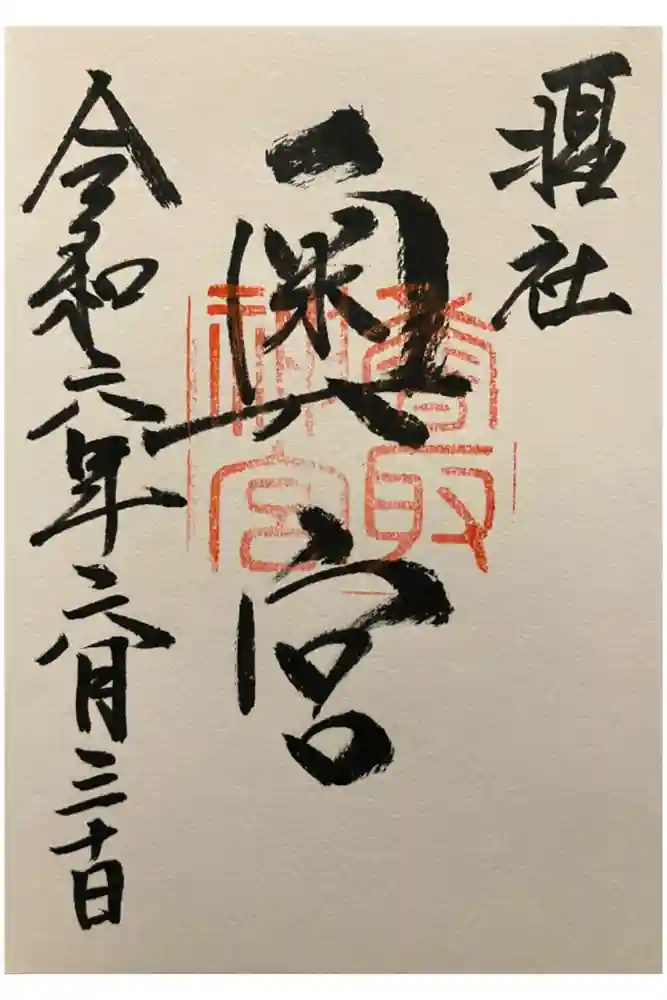 摂社
奥宮
香取
神宮
令和六年六月三十日